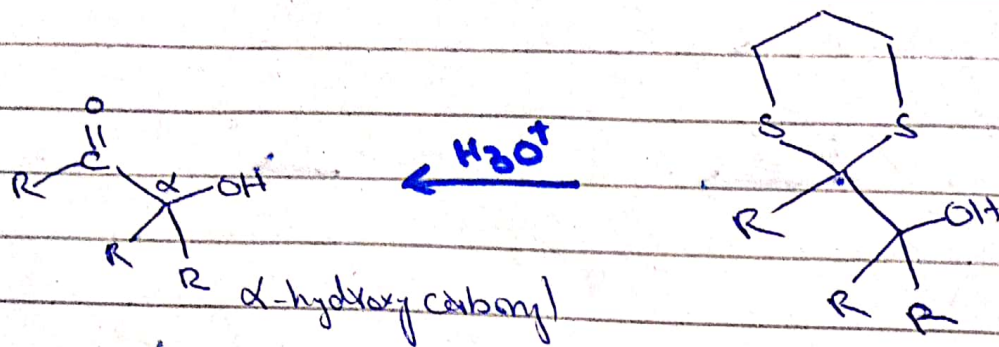 O
C
R
α
OH
R
R
α-hydroxy carbonyl
H3O+
S
S
R
OH
R
R